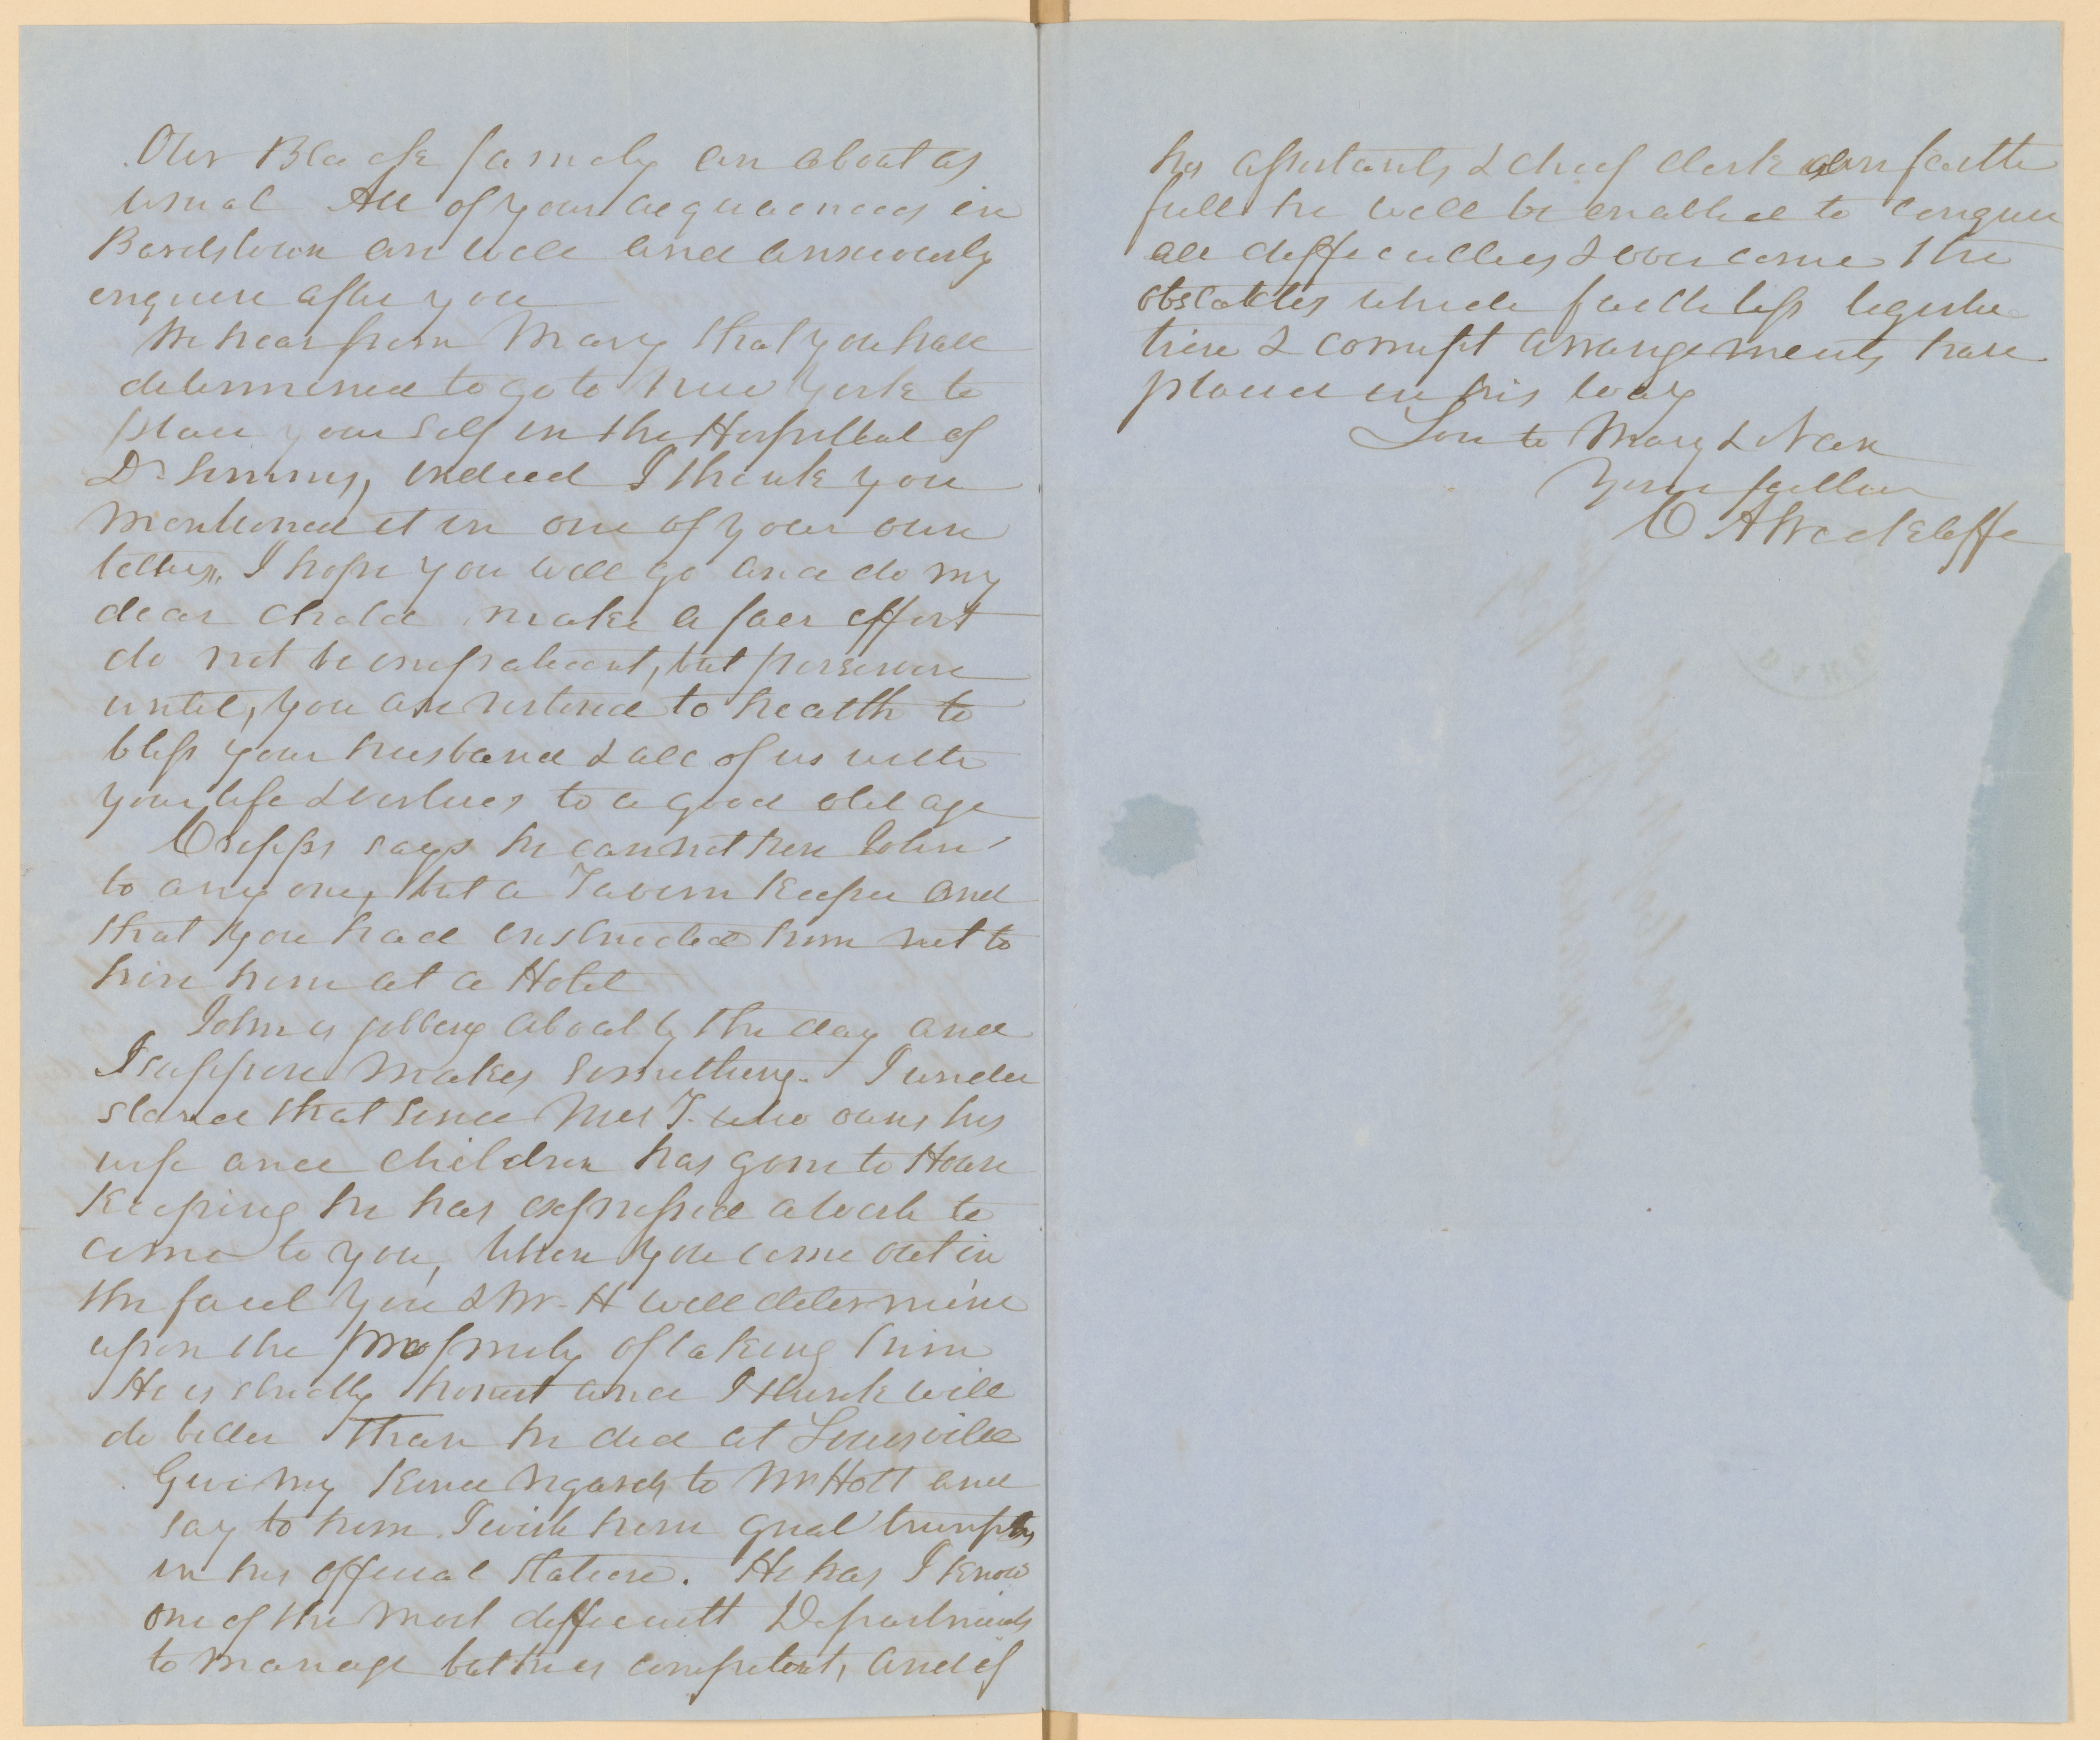 Our Black family are about as
usual All of your acquaences in
Bardstown are well and anxiously
enquire after you
We hear from Mary that you have
determined to go to New York to
place yourself in the Hospittal of
Dr Simms, indeed I think you
mentioned it in one of your own
letters, I hope you will go and do my
dear child make a fair effort
do not be impatient, but persevere
until, you are restored to health to
bless your husband & all of us with
your life & virtues to a good old age
Cripps says he cannot hire John
to any one, but a Tavern Keeper and
that you had instructed him not to
hire him at a Hotel
John is jobbing about by the day and
I suppose makes something. I under
stand that since Mrs T. who owns his
wife and children has gone to House
Keeping he has expressed a wish to
come to you, when you come out in
the faul you & Mr H will determine
upon the propriety of taking him
He is strictly honest and I think will
do better than he did at Louisville
Give my kind regards to Mr Holt and
say to him I wish him great triumphs
in his official station. He has I know
one of the most difficultt Departments
to manage but he is competent, and if
his assistants & chief clerk are faith
full he will be enabled to conquer
all difficulties & over come the
obstakles which faithless legisla
tion & corrupt arrangements have
placed in his way
Love to Mary & Nan
Your father
C A Wickliffe